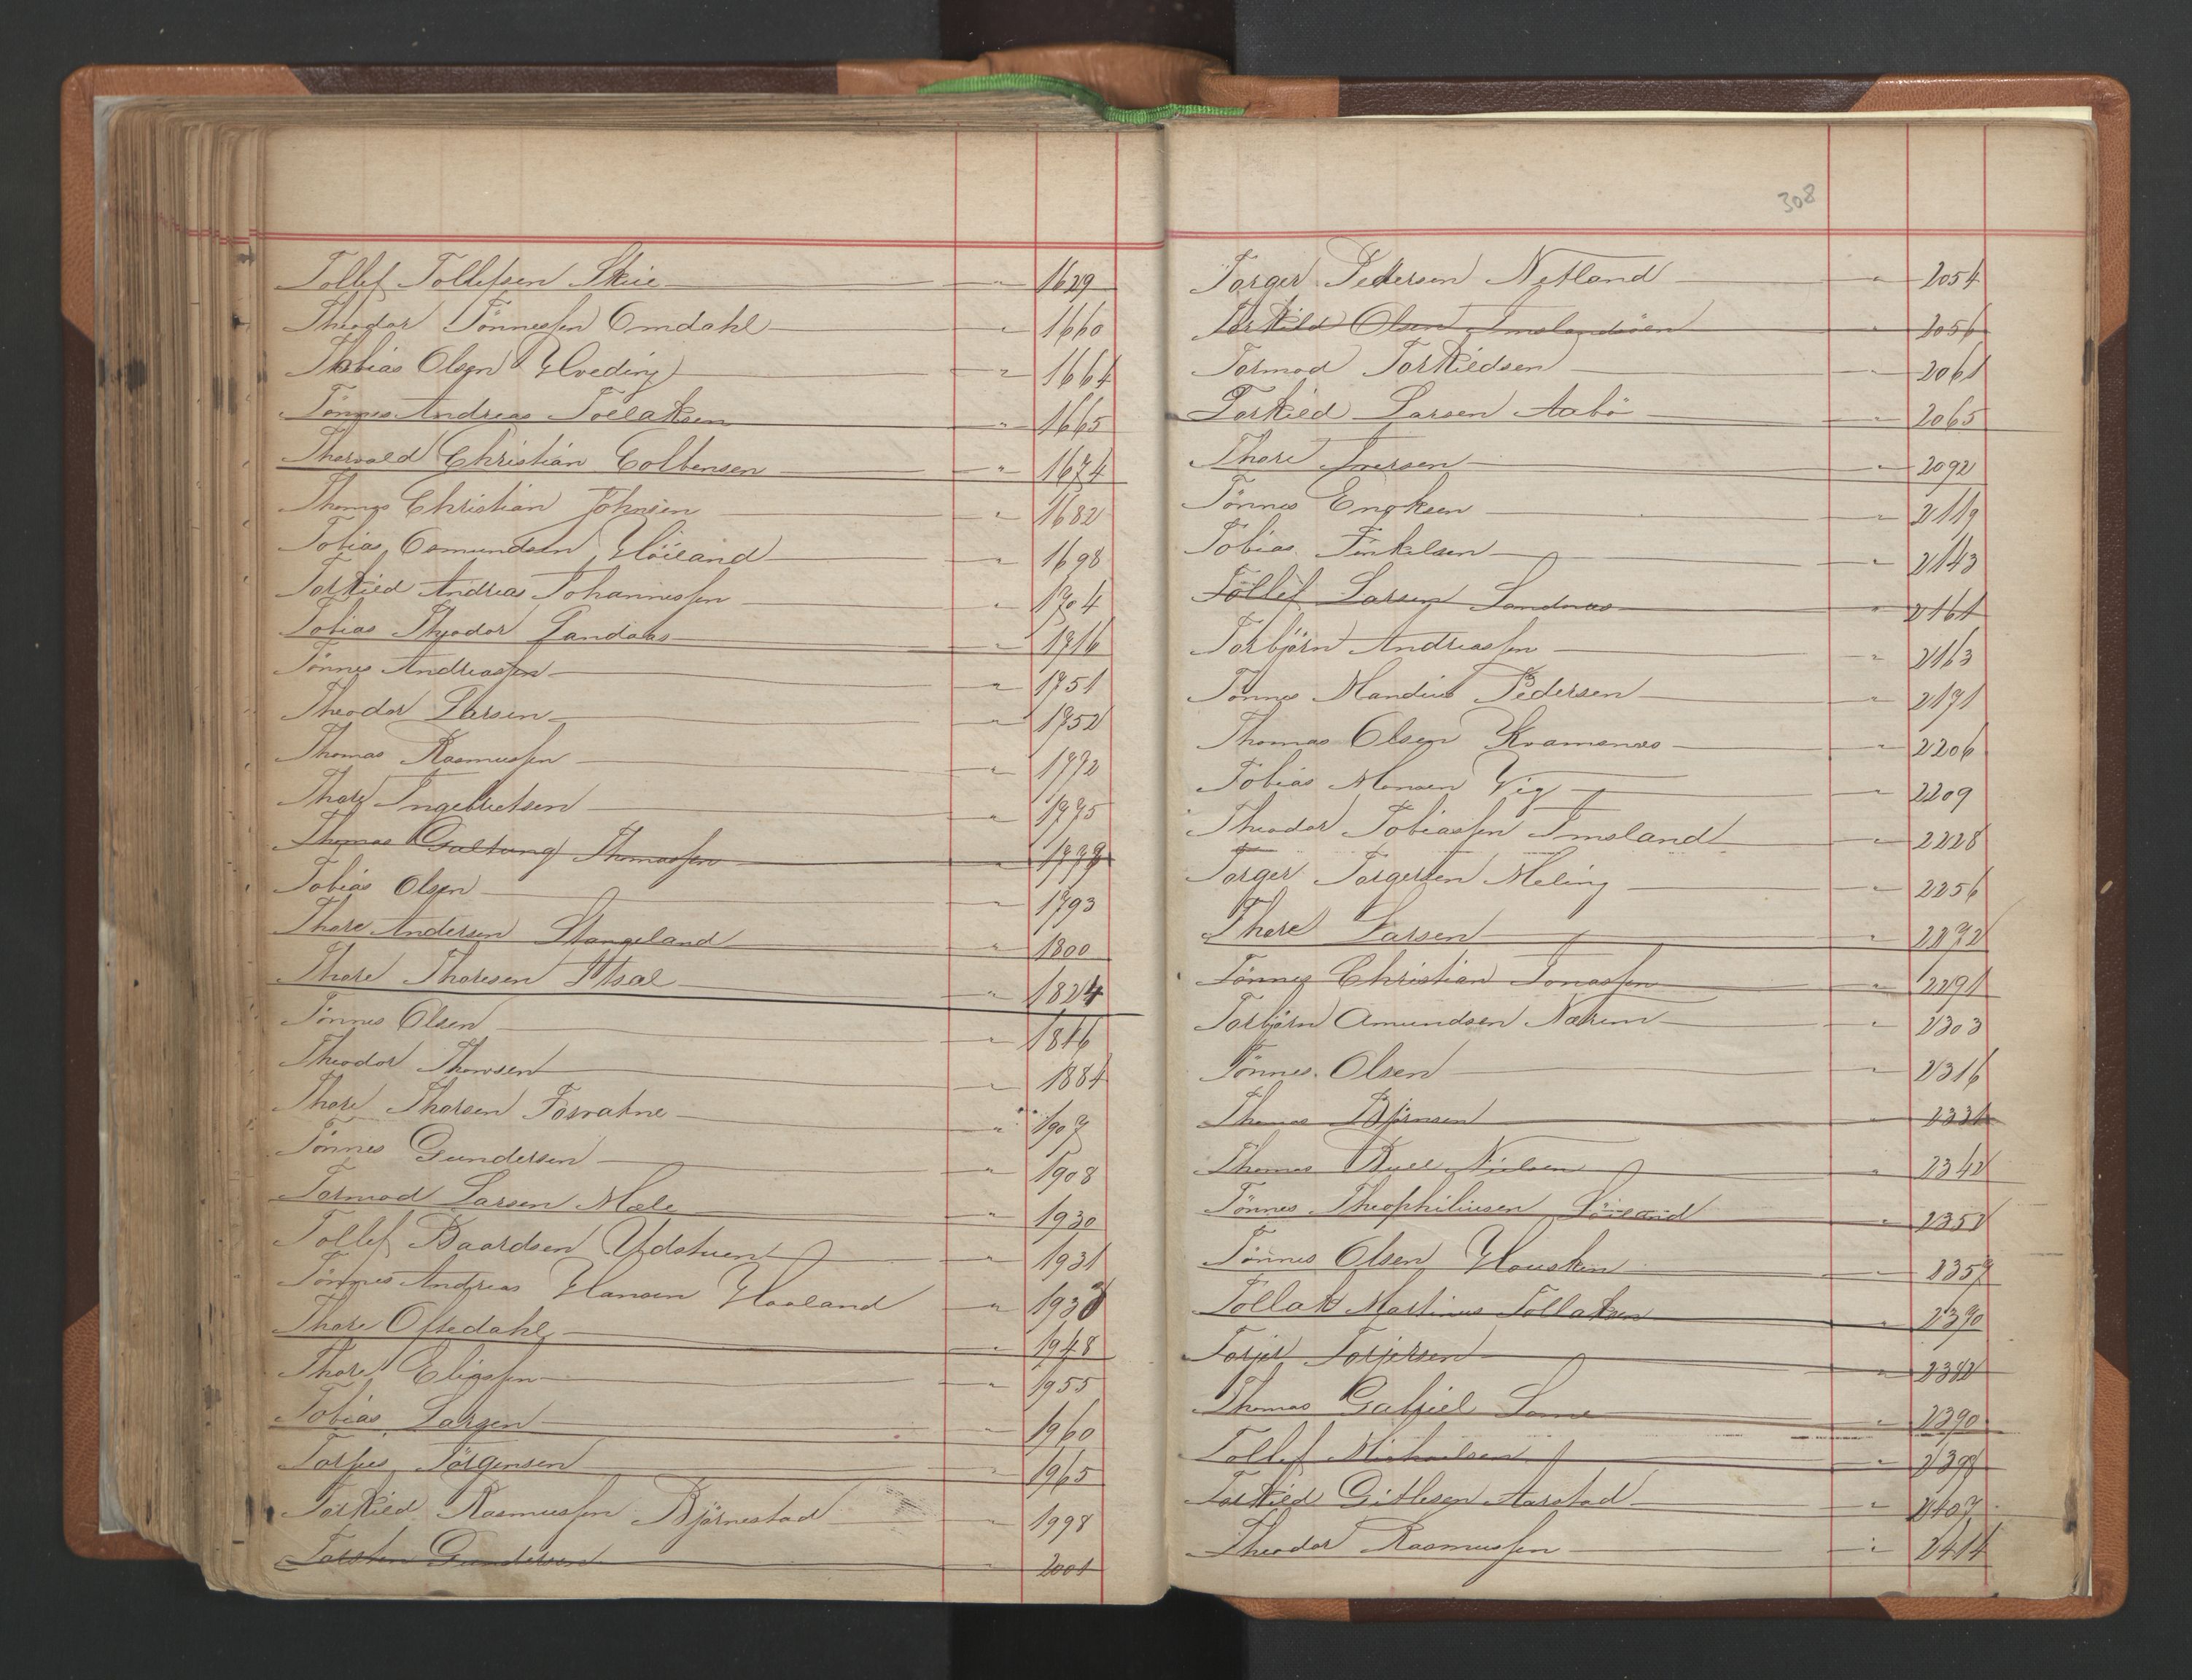 Tollef Tollefsen Skeie " 1629
Theodor Tönnessen Omdahl " 1660
Tobias Olsen Hveding " 1664
Tönnes Andreas Tollaksen " 1665
Thorvald Christian Colbensen " 1674
Thomas Christian Johnsen " 1682
Tobias Osmundsen Höiland " 1698
Torkild Andreas Johannessen " 1704
Tobias Theodor Gandaas " 1716
Tönnes Andreassen " 1751
Theodor Larsen " 1752
Thomas Rasmussen " 1772
Thore Ingebretsen 1775
Thomas Galtung Thomassen "
Tobias Olsen " 1793
Thore Andersen Stangeland " 1800
Thore Thoresen " 1824
Tönnes Olsen "
Theodor Thorsen " 1884
Thore Thorsen " 1907
Tönnes Gundersen " 1908
Tormod Larsen Mæle " 1930
Tollef Baardsen Udstuen " 1931
Tönnes Andreas Hansen Haaland "
Thore Oftedahl " 1948
Thore Eliassen " 1955
Tobias Larsen " 1960
Torjus Jörgensen " 1965
Torkild Rasmussen Björnestad " 1998
Torsten Gundersen " 2001
308
Torger Pedersen Netland " 2054
Torkild Olsen Imslandsöen " 2056
Tormod Torkildsen " 2061
Torkild Larsen Aabö " 2065
Thore Iversen " 2092
Tönnes Enoksen " 2119
Tobias Finkelsen " 2143
Tollef Larsen Sandnæs " 2161
Torbjörn Andreassen " 2163
Tönnes Mandius Pedersen " 2171
Thomas Olsen Kvamsnæs " 2206
Tobias Monsen Vig " 2209
Theodor Tobiassen Imsland " 2228
Torger Torgersen Meling " 2256
Thore Larsen " 2272
Tönnes Christian Jonassen " 2291
Torbjörn Amundsen Nærem " 2303
Tönnes Olsen " 2316
Thomas Björnsen " 2331
Thomas Bull Nielsen " 2342
Tönnes Theophiliusen Löiland " 2352
Tönnes Olsen Housken " 2357
Tollak Martinus Tollaksen "
Torjer Torjersen " 2382
Thomas Gabriel Lome " 2390
Tollef Michaelsen " 2398
Torkild Gitlesen Aarstad " 2407
Theodor Rasmussen " 2414